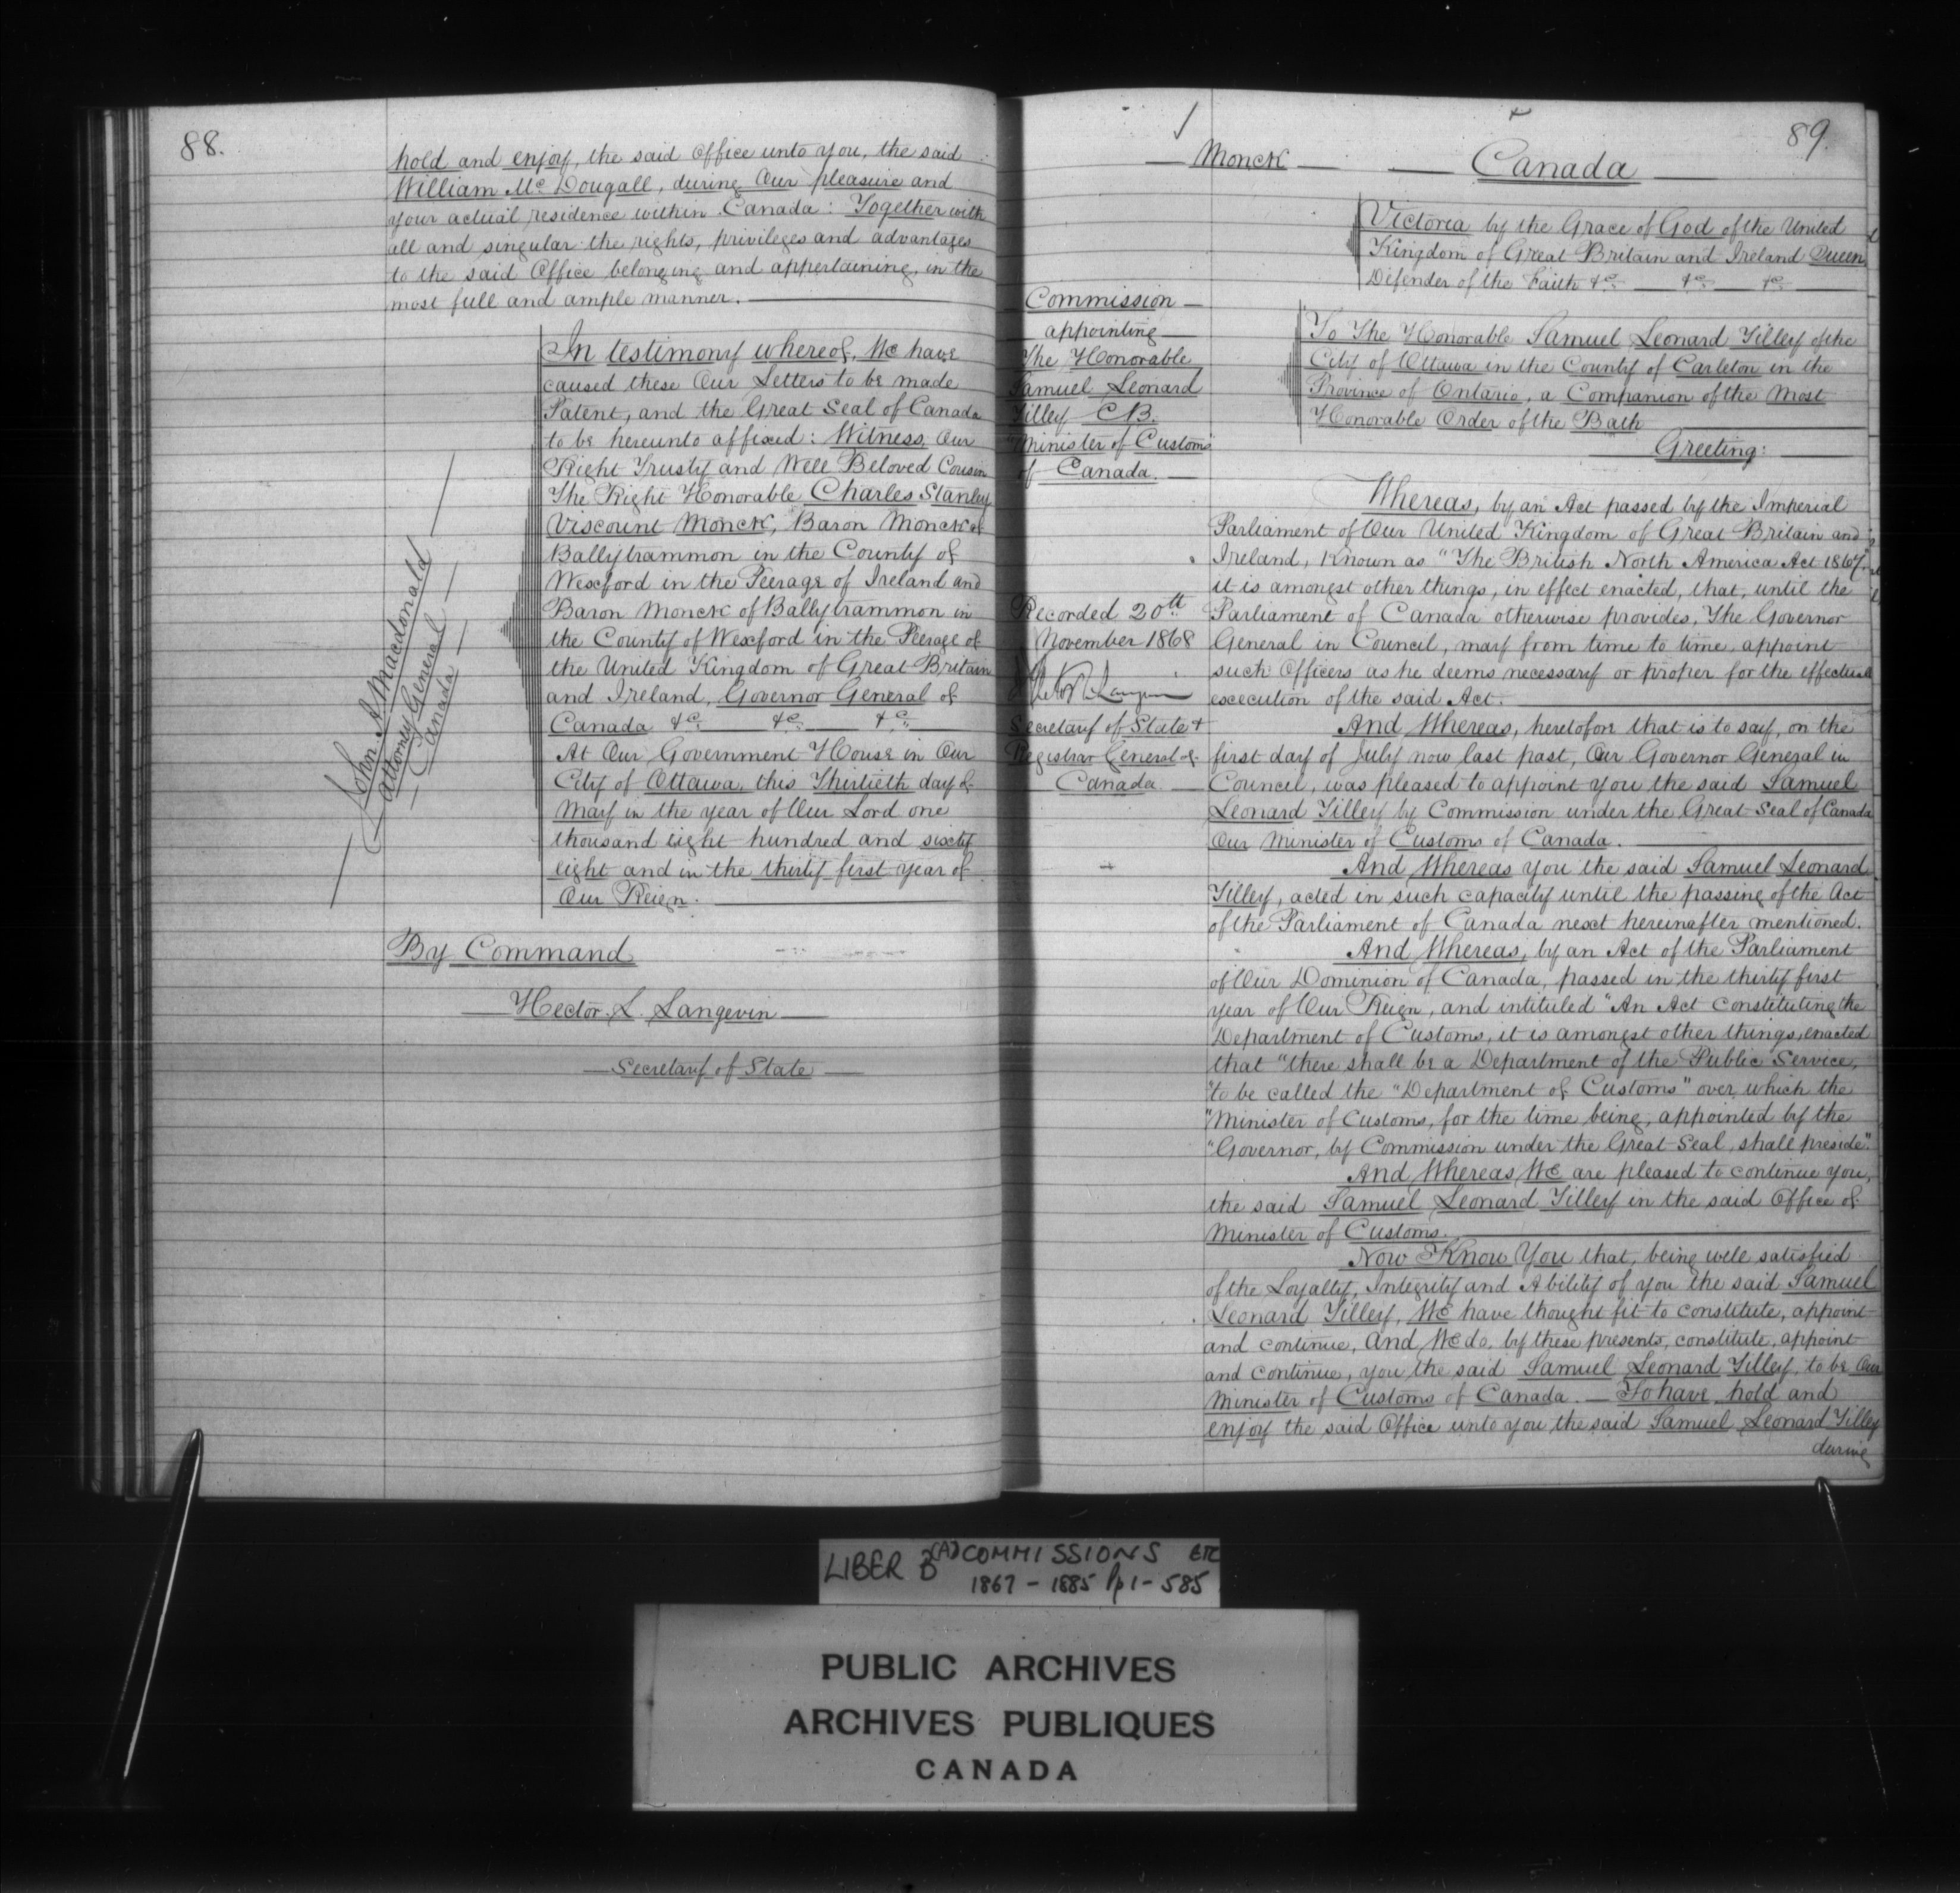 88.
hold and enjoy, the said Office unto you, the said
William McDougall, during Our pleasure and
your actual residence within Canada: Together with
all and singular the rights, privileges and advantages
to the said Office belonging and appertaining, in the
most full and ample manner.
In testimony whereof, We have
caused these Our Letters to be made
Patent, and the Great Seal of Canada
to be hereunto affixed: Witness, Our
Right Trusty and Well Beloved Cousin
The Right Honorable Charles Stanley
Viscount Monck, Baron Monck of
Ballytrammon in the County of
Wexford in the Peerage of Ireland and
Baron Monck of Ballytrammon in
the County of Wexford in the Peerage of
the United Kingdom of Great Britain
and Ireland, Governor General of
Canada &c. &c. &c.
At Our Government House in Our
City of Ottawa, this Thirtieth day of
May in the year of Our Lord one
thousand eight hundred and sixty
eight and in the thirty first year of
Our Reign.
John A Macdonald
Attorney General
Canada
By Command
Hector. L. Langevin
Secretary of State
89.
Monck
Canada
Victoria by the Grace of God of the United
Kingdom of Great Britain and Ireland Queen,
Defender of the Faith &c. &c. &c.
Commission
appointing
The Honorable
Samuel Leonard
Tilley CB.
"Minister of Customs"
of Canada.
Recorded 20th
November 1868
Secretary of State &
Registrar General of
Canada
To The Honorable Samuel Leonard Tilley of the
City of Ottawa in the County of Carleton in the
Province of Ontario, a Companion of the Most
Honorable Order of the Bath
Greeting:
Whereas, by an Act passed by the Imperial
Parliament of Our United Kingdom of Great Britain and
Ireland, Known as "The British North America Act 1867,"
it is amongst other things, in effect enacted, that, until the
Parliament of Canada otherwise provides, The Governor
General in Council, may from time to time, appoint
such Officers as he deems necessary or proper for the effectual
execution of the said Act.
And Whereas, heretofore that is to say, on the
first day of July now last past, Our Governor General in
Council, was pleased to appoint you the said Samuel
Leonard Tilley by Commission under the Great Seal of Canada
Our Minister of Customs of Canada.
And Whereas you the said Samuel Leonard
Tilley, acted in such capacity until the passing of the Act
of the Parliament of Canada next hereinafter mentioned.
And Whereas, by an Act of the Parliament
of Our Dominion of Canada, passed in the thirty first
year of Our Reign, and intituled "An Act constituting the
Department of Customs, it is amongst other things, enacted
that "there shall be a Department of the Public Service,
"to be called the "Department of Customs" over which the
"Minister of Customs, for the time being, appointed by the
"Governor, by Commission under the Great Seal, shall preside".
And Whereas We are pleased to continue you,
the said Samuel Leonard Tilley in the said Office of
Minister of Customs.
Now Know You that, being well satisfied
of the Loyalty, Integrity and Ability of you the said Samuel
Leonard Tilley, We have thought fit to constitute, appoint
and continue, and We do, by these presents, constitute, appoint
and continue, you the said Samuel Leonard Tilley, to be Our
Minister of Customs of Canada. To have hold and
enjoy the said Office unto you the said Samuel Leonard Tilley
during
LIBER B (A) COMMISSIONS ETC
1867 - 1885 Pp 1 - 585
PUBLIC ARCHIVES
ARCHIVES PUBLIQUES
CANADA